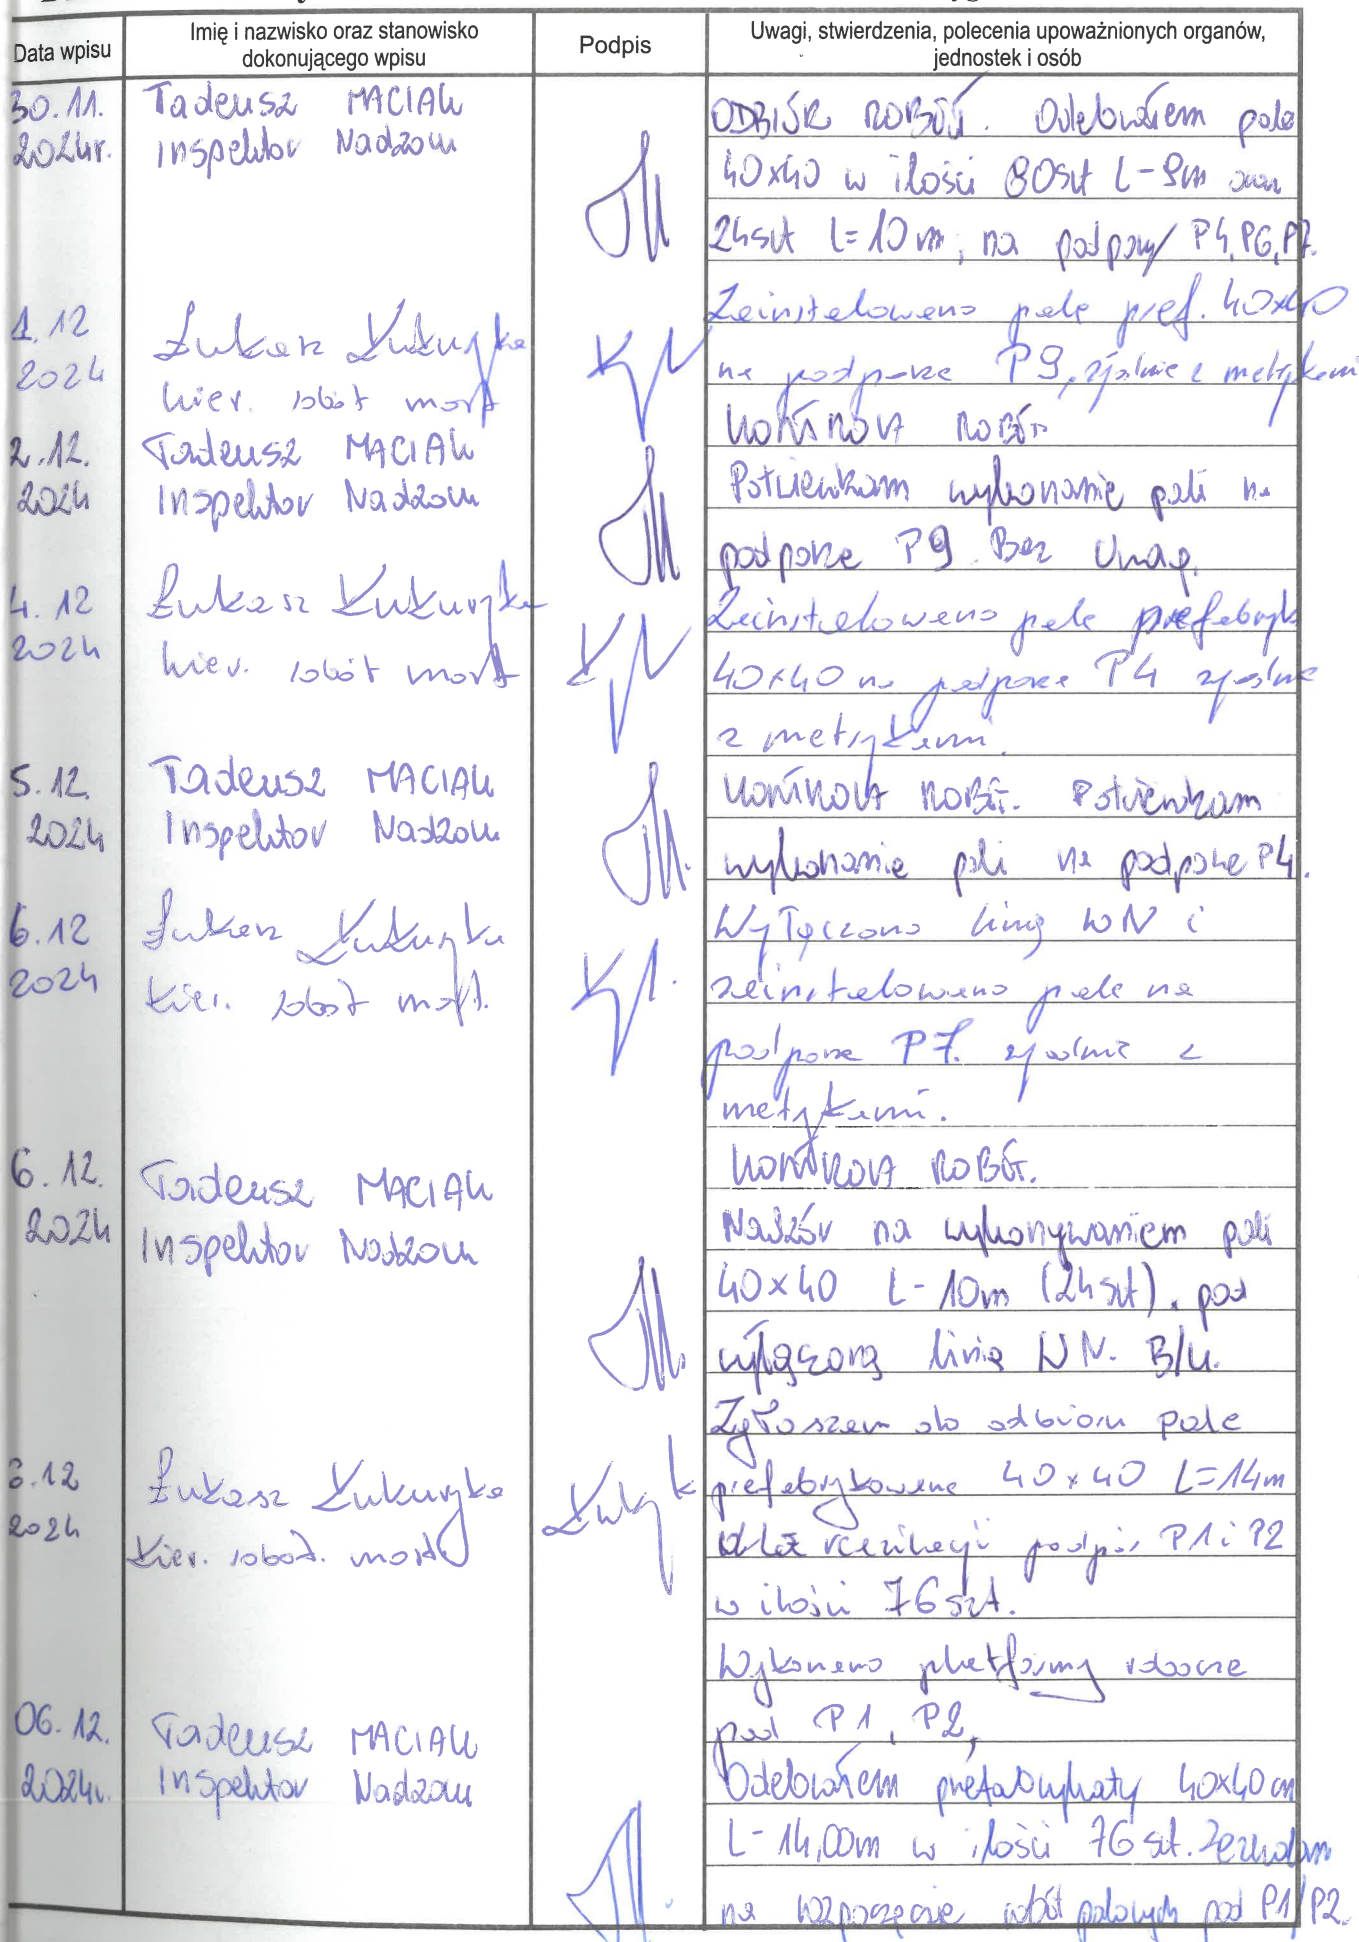 Data wpisu
Imię i nazwisko oraz stanowisko
dokonującego wpisu
Podpis
Uwagi, stwierdzenia, polecenia upoważnionych organów,
jednostek i osób
30.11.
2024r.
Tadeusz MACIAK
Inspektor Nadzoru
ODBIÓR ROBÓT. Odebrałem pale
40x40 w ilości 80szt L-9m oraz
24szt L=10m, na podpory P4, P6, P7.
1.12
2024
Łukasz Kukuryka
kier. robót most
Zainstalowano pale pref. 40x40
na podporze P9, zgodnie z metrykami
2.12.
2024
Tadeusz MACIAK
Inspektor Nadzoru
KONTROLA ROBÓT
Potwierdzam wykonanie pali na
podporze P9. Bez Uwag.
4.12
2024
Łukasz Kukuryka
kier. robót most
Zainstalowano pale prefabryk
40x40 na podporze P4 zgodnie
z metrykami.
5.12.
2024
Tadeusz MACIAK
Inspektor Nadzoru
KONTROLA ROBÓT. Potwierdzam
wykonanie pali na podporze P4.
6.12
2024
Łukasz Kukuryka
kier. robót most.
Wyłączono linię WN i
zainstalowano pale na
podporze P7. zgodnie z
metrykami.
6.12.
2024
Tadeusz MACIAK
Inspektor Nadzoru
KONTROLA ROBÓT.
Nadzór na wykonywaniem pali
40x40 L-10m (24szt). pod
wyłączoną linią WN. B/U.
.12
2024
Łukasz Kukuryka
Kier. robot. most
Zgłoszem do odbioru pale
prefabrykowane 40x40 L=14m
dla realizacji podpór P1 i P2
w ilości 76 szt.
Wykonano platformy robocze
pod P1, P2,
06.12.
2024r.
Tadeusz MACIAK
Inspektor Nadzoru
Odebrałem prefabrykaty 40x40cm
L-14,00m w ilości 76 szt. Zezwalam
na rozpoczęcie robót palowych pod P1/P2.